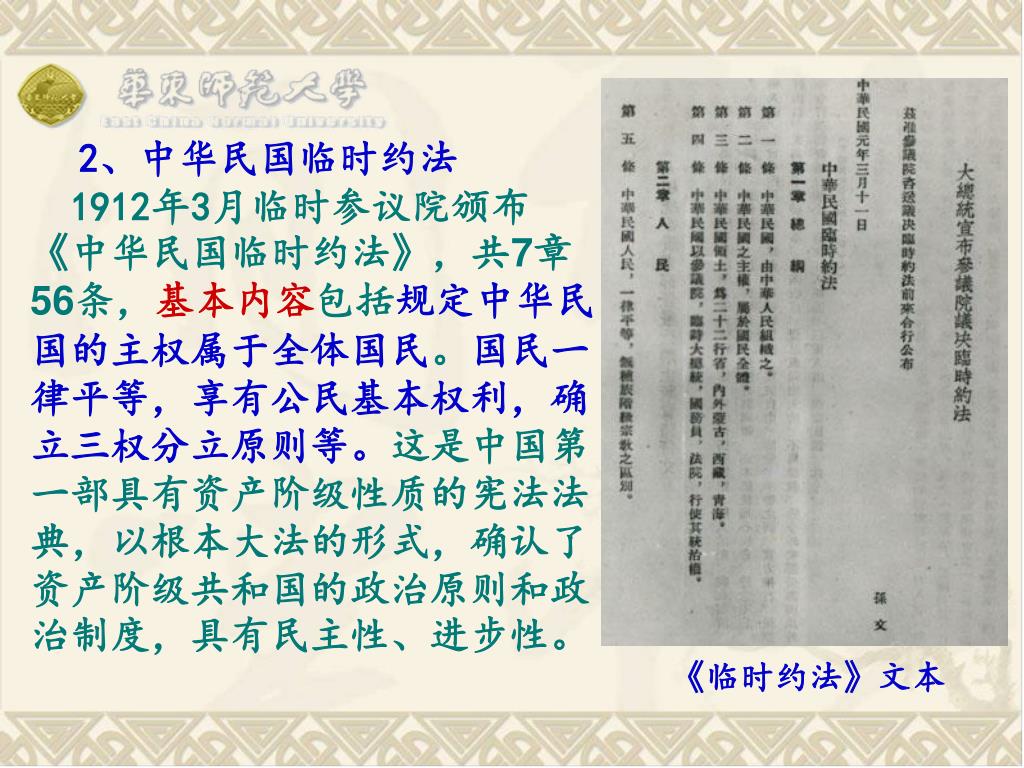 華東師範大學
East China Normal University
2、中华民国临时约法
1912年3月临时参议院颁布
《中华民国临时约法》，共7章
56条，基本内容包括规定中华民
国的主权属于全体国民。国民一
律平等，享有公民基本权利，确
立三权分立原则等。这是中国第
一部具有资产阶级性质的宪法法
典，以根本大法的形式，确认了
资产阶级共和国的政治原则和政
治制度，具有民主性、进步性。
大總統宣布參議院議决臨時約法
茲准參議院咨送議决臨時約法前來合行公布
孫文
中華民國元年三月十一日
中華民國臨時約法
第一章 總綱
第一條 中華民國，由中華人民組織之。
第二條 中華民國之主權，屬於國民全體。
第三條 中華民國領土，爲二十二行省，內外蒙古，西藏，青海。
第四條 中華民國以參議院，臨時大總統，國務員，法院，行使其統治權。
第二章 人民
第五條 中華民國人民，一律平等，無種族階級宗敎之區別。
《临时约法》文本